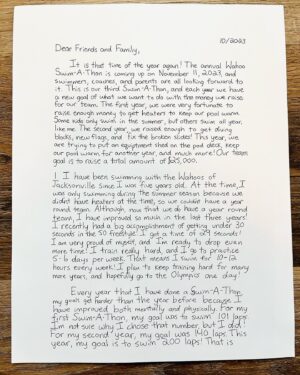 10/2023
Dear Friends and Family,
It is that time of the year again! The annual Wahoo
Swim-A-Thon is coming up on November 11, 2023, and
swimmers, coaches, and parents are all looking forward to
it. This is our third Swim-A-Thon, and each year we have
a new goal of what we want to do with the money we raise
for our team. The first year, we were very fortunate to
raise enough money to get heaters to keep our pool warm.
Some kids only swim in the summer, but others swim all year,
like me. The second year, we raised enough to get diving
blocks, new flags, and fix the broken slides! This year, we
are trying to put an equipment shed on the pool deck, keep
our pool warm for another year, and much more! Our team
goal is to raise a total amount of $25,000.
I have been swimming with the Wahoos of
Jacksonville since I was five years old. At the time, I
was only swimming during the summer season because we
didn't have heaters at the time, so we couldn't have a year
round team. Although, now that we do have a year round
team, I have improved so much in the last three years!
I recently had a big accomplishment of getting under 30
seconds in the 50 freestyle! I got a time of 29 seconds!
I am very proud of myself, and I'm ready to drop even
more time! I train really hard, and I go to practice
5-6 days per week. That means I swim for 10-12
hours every week! I plan to keep training hard for many
more years, and hopefully go to the Olympics one day!
Every year that I have done a Swim-A-Thon,
my goals get harder than the year before because I
have improved both mentally and physically. For my
first Swim-A-Thon, my goal was to swim 101 laps.
I'm not sure why I chose that number, but I did!
For my second year, my goal was 140 laps. This
year, my goal is to swim 200 laps! That is